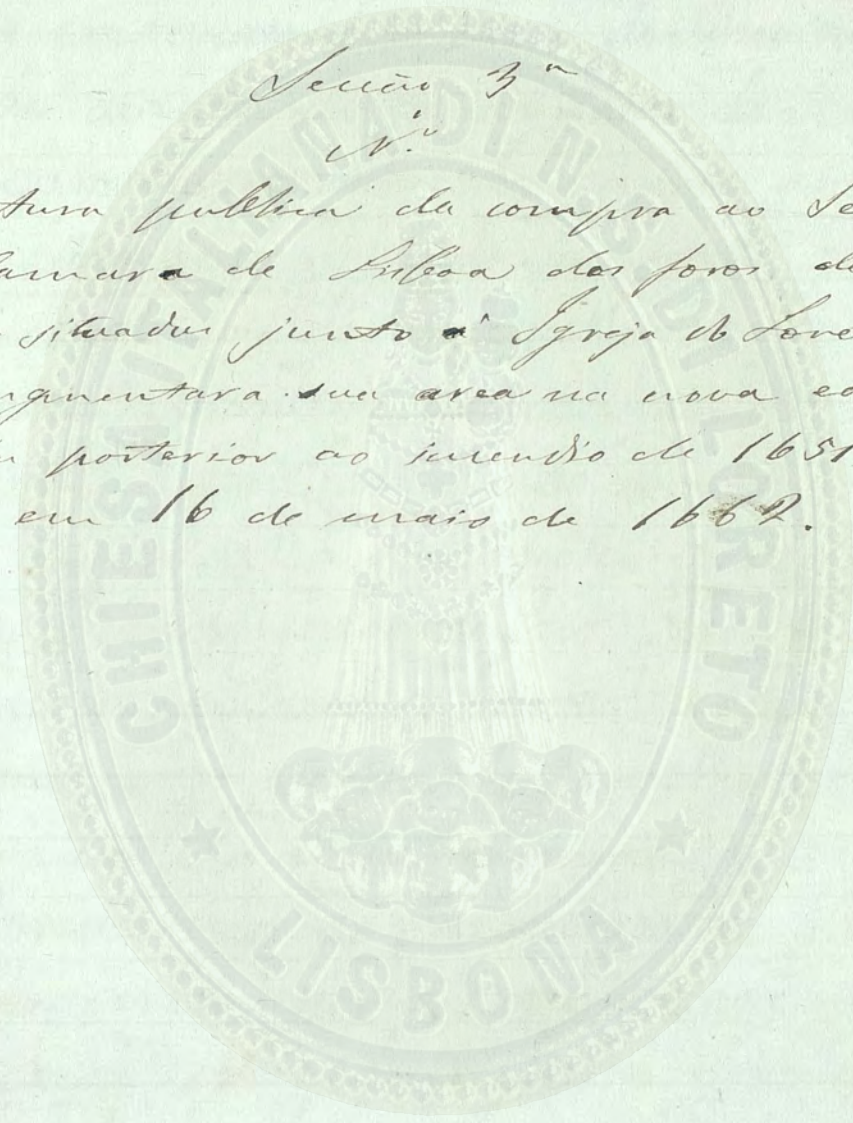 Secção 3ª
N.º
tura publica da compra ao Se
amara de Lisboa dos foros de
situados junto á Igreja do Lore
augmentara sua area na nova ed
posterior ao incendio de 1651
em 16 de maio de 1662.
CHIESA ITALIANA DI N. S. DI LORETO
LISBONA